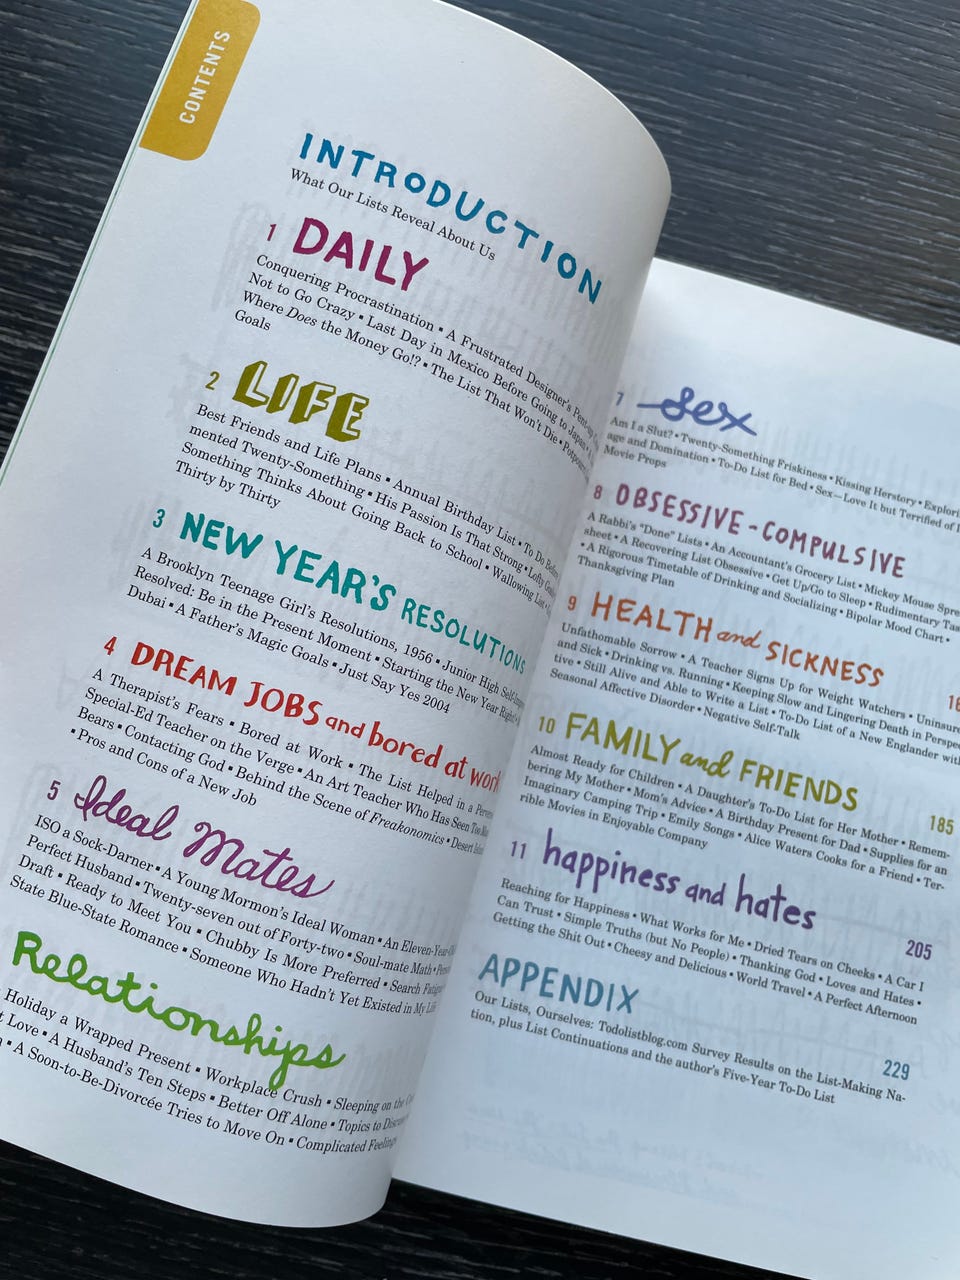 CONTENTS
INTRODUCTION
What Our Lists Reveal About Us
1 DAILY
Conquering Procrastination ▪ A Frustrated Designer's
Not to Go Crazy ▪ Last Day in Mexico Before Going to Japan ▪
Where Does the Money Go!? ▪ The List That Won't Die ▪
Goals
2 LIFE
Best Friends and Life Plans ▪ Annual Birthday List ▪ To Do Before
mented Twenty-Something ▪ His Passion Is That Strong ▪ Lofty
Something Thinks About Going Back to School ▪ Wallowing List ▪
Thirty by Thirty
3 NEW YEAR'S RESOLUTIONS
A Brooklyn Teenage Girl's Resolutions, 1956 ▪ Junior High
Resolved: Be in the Present Moment ▪ Starting the New Year Right ▪
Dubai ▪ A Father's Magic Goals ▪ Just Say Yes 2004
4 DREAM JOBS and bored at work
A Therapist's Fears ▪ Bored at Work ▪ The List Helped in a
Special-Ed Teacher on the Verge ▪ An Art Teacher Who Has Seen Too
Bears ▪ Contacting God ▪ Behind the Scene of Freakonomics ▪ Desert
▪ Pros and Cons of a New Job
5 Ideal Mates
ISO a Sock-Darner ▪ A Young Mormon's Ideal Woman ▪ An Eleven-Year-
Perfect Husband ▪ Twenty-seven out of Forty-two ▪ Soul-mate Math ▪
Draft ▪ Ready to Meet You ▪ Chubby Is More Preferred ▪ Search
State Blue-State Romance ▪ Someone Who Hadn't Yet Existed in My Life
Relationships
Holiday a Wrapped Present ▪ Workplace Crush ▪ Sleeping on the
Love ▪ A Husband's Ten Steps ▪ Better Off Alone ▪ Topics to
▪ A Soon-to-Be-Divorcée Tries to Move On ▪ Complicated Feelings
7 Sex
Am I a Slut? ▪ Twenty-Something Friskiness ▪ Kissing Herstory ▪
age and Domination ▪ To-Do List for Bed ▪ Sex—Love It but Terrified of
Movie Props
8 OBSESSIVE-COMPULSIVE
A Rabbi's "Done" Lists ▪ An Accountant's Grocery List ▪ Mickey Mouse
sheet ▪ A Recovering List Obsessive ▪ Get Up/Go to Sleep ▪ Rudimentary
▪ A Rigorous Timetable of Drinking and Socializing ▪ Bipolar Mood Chart ▪
Thanksgiving Plan
9 HEALTH and SICKNESS
Unfathomable Sorrow ▪ A Teacher Signs Up for Weight Watchers ▪
and Sick ▪ Drinking vs. Running ▪ Keeping Slow and Lingering Death in
tive ▪ Still Alive and Able to Write a List ▪ To-Do List of a New Englander
Seasonal Affective Disorder ▪ Negative Self-Talk
10 FAMILY and FRIENDS 185
Almost Ready for Children ▪ A Daughter's To-Do List for Her Mother ▪ Remem-
bering My Mother ▪ Mom's Advice ▪ A Birthday Present for Dad ▪ Supplies for an
Imaginary Camping Trip ▪ Emily Songs ▪ Alice Waters Cooks for a Friend ▪ Ter-
rible Movies in Enjoyable Company
11 happiness and hates 205
Reaching for Happiness ▪ What Works for Me ▪ Dried Tears on Cheeks ▪ A Car I
Can Trust ▪ Simple Truths (but No People) ▪ Thanking God ▪ Loves and Hates ▪
Getting the Shit Out ▪ Cheesy and Delicious ▪ World Travel ▪ A Perfect Afternoon
APPENDIX 229
Our Lists, Ourselves: Todolistblog.com Survey Results on the List-Making Na-
tion, plus List Continuations and the author's Five-Year To-Do List